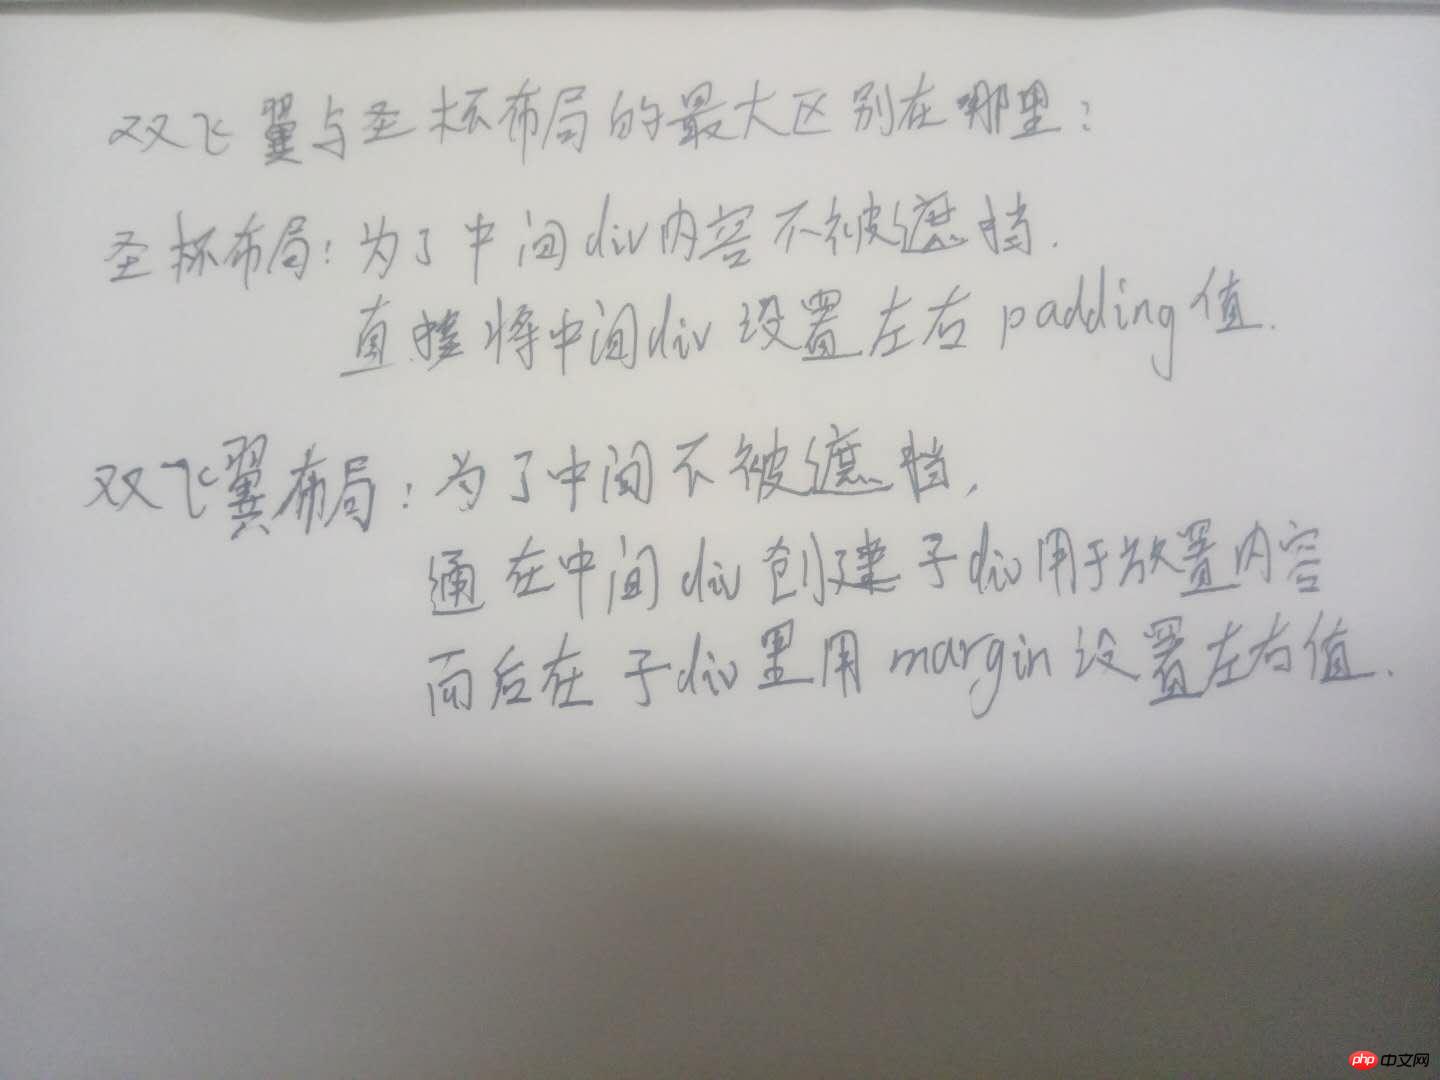 双飞翼与圣杯布局的最大区别在哪里:
圣杯布局:为了中间div内容不被遮挡.
直接将中间div设置左右padding值.
双飞翼布局:为了中间不被遮挡,
通在中间div创建子div用于放置内容
而后在子div里用margin设置左右值.
php中文网